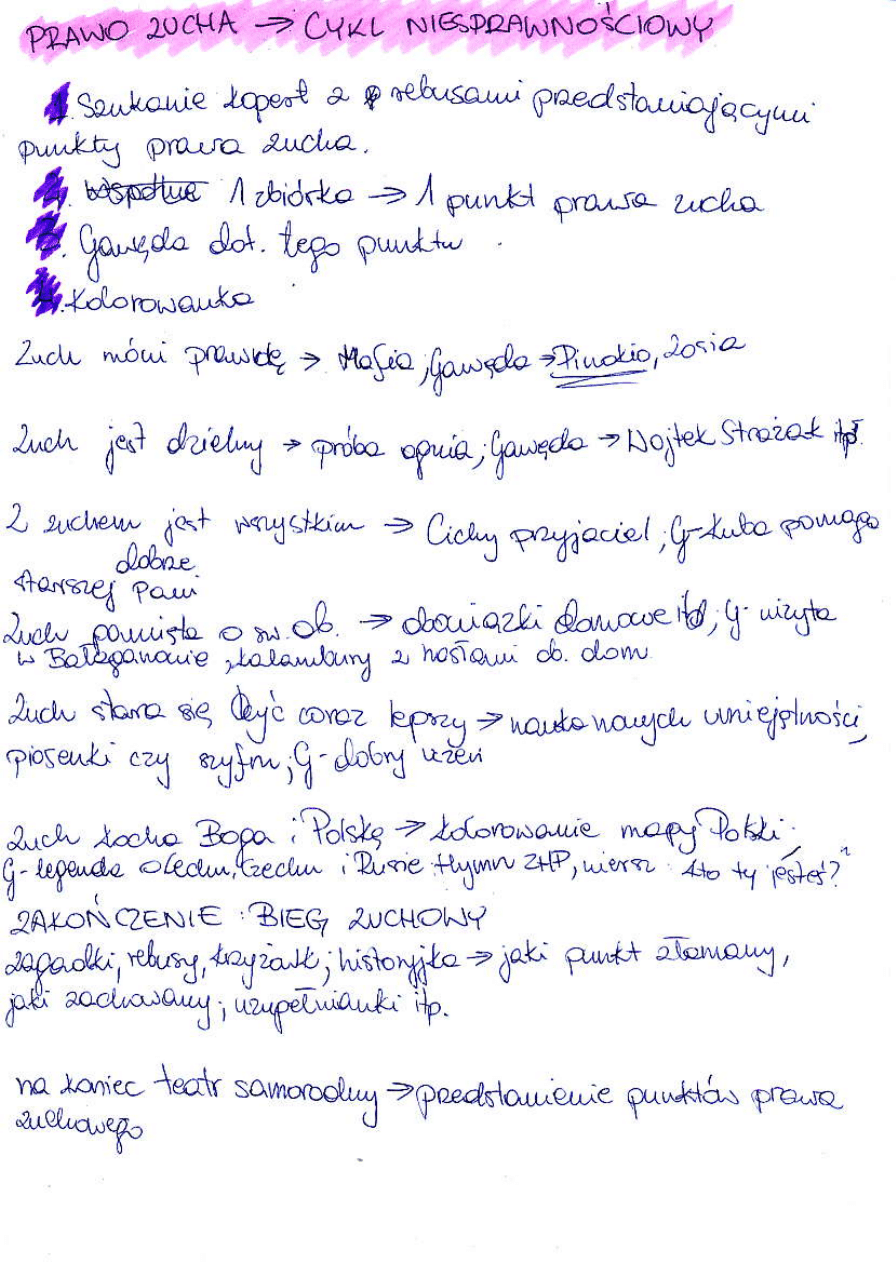 PRAWO ZUCHA → CYKL NIESPRAWNOŚCIOWY
1. Szukanie kopert z rebusami przedstawiającymi
punkty prawa zucha.
2. Wspólne 1 zbiórka → 1 punkt prawa zucha
3. Gawęda dot. tego punktu
4. Kolorowanka
Zuch mówi prawdę → Mafia; Gawęda → Pinokio, Zosia
Zuch jest dzielny → próba ognia; Gawęda → Wojtek Strażak itp.
Z zuchem jest wszystkim → Cichy przyjaciel; G-Kuba pomaga
dobrze
starszej Pani
Zuch pamięta o sw. ob. → obowiązki domowe itd; G- wizyta
w Bałaganowie, kalambury z hasłami ob. dom.
Zuch stara się być coraz lepszy → nauka nowych umiejętności,
piosenki czy szyfru; G- dobry uczeń
Zuch kocha Boga i Polskę → kolorowanie mapy Polski.
G- legenda o Lechu, Czechu i Rusie Hymn ZHP, wiersz "Kto ty jesteś?"
ZAKOŃCZENIE: BIEG ZUCHOWY
zagadki, rebusy, krzyżówk; historyjka → jaki punkt złamany,
jaki zachowany; uzupełnianki itp.
na koniec teatr samorodny → przedstawienie punktów prawa
zuchowego